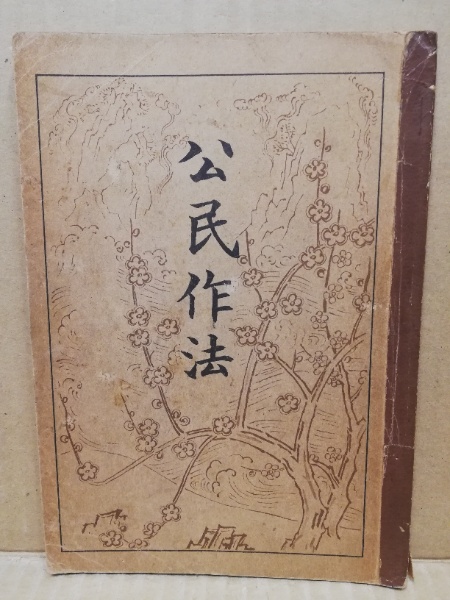 公民作法